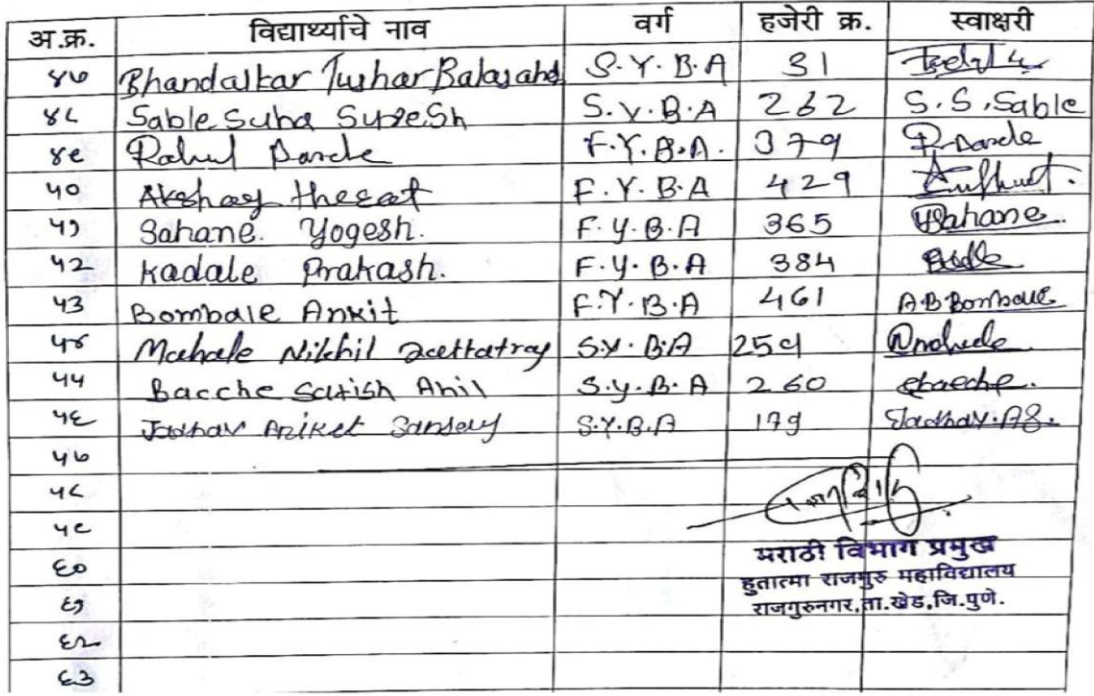 अ.क्र. विद्यार्थ्याचे नाव वर्ग हजेरी क्र. स्वाक्षरी
४७ Bhandalkar Tushar Balasaheb S.Y.B.A 31
४८ Sable Suha SureSh S.Y.B.A 262 S.S.Sable
४९ Rahul Darde F.Y.B.A. 379 R Darde
५० Akshay thegat F.Y.B.A 429
५१ Sahane. Yogesh. F.Y.B.A 365 Sahane.
५२ Kadale Prakash. F.Y.B.A 384
५३ Bombale Ankit F.Y.B.A 461 A B Bombale
५४ Mahale Nikhil Dattatray S.Y.B.A 259
५५ Bacche Satish Anil S.y.B.A 260
५६ Jadhav Aniket S.Y.B.A 179 Jadhav.AS.
५७
५८
५९
६०
मराठी विभाग प्रमुख
हुतात्मा राजगुरु महाविद्यालय
६१ राजगुरुनगर,ता.खेड,जि.पुणे.
६२
६३